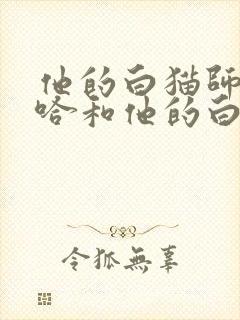 他的白猫師
和他的白
令狐無辜